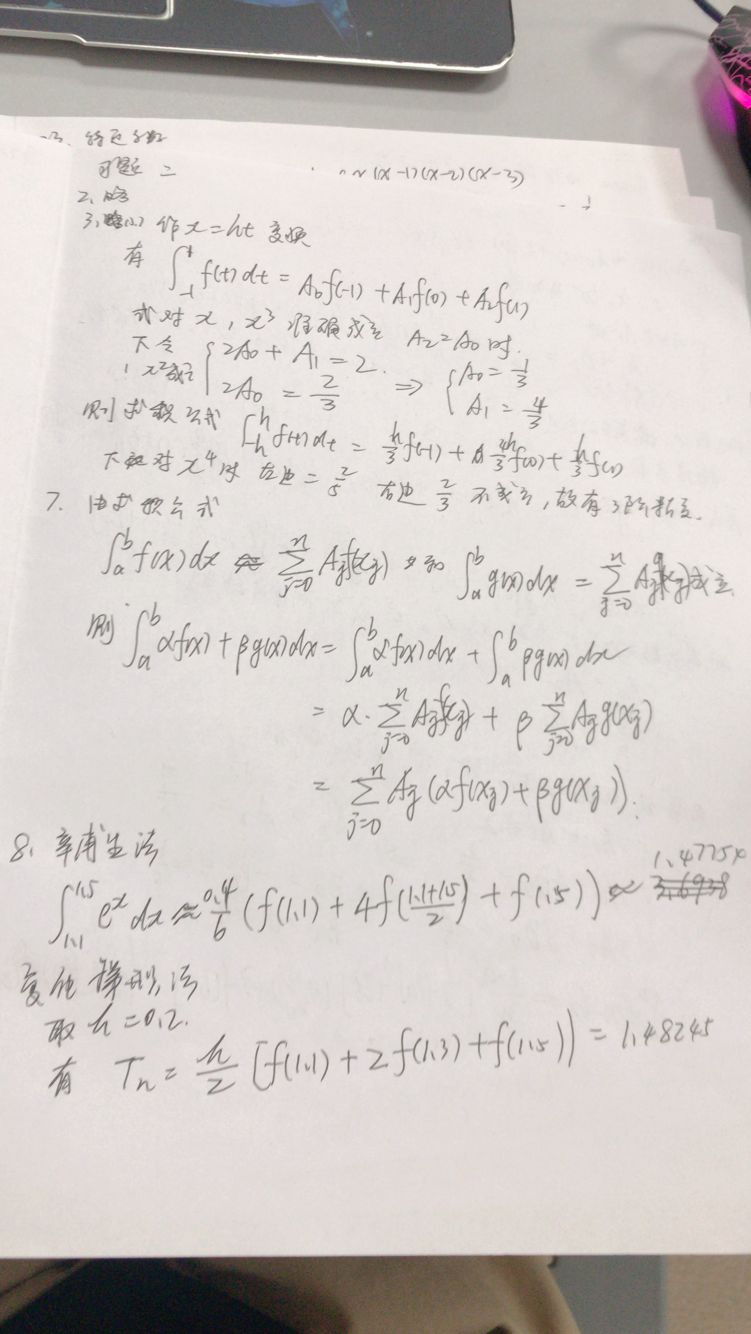 习题二
(x-1)(x-2)(x-3)
2、略
3、(1) 作 x=ht 变换
有 ∫_{-1}^{1} f(t)dt = A₀f(-1) + A₁f(0) + A₂f(1)
式对 x, x³ 准确成立 A₂=A₀ 时.
下令
1 x²成立 { 2A₀ + A₁ = 2. 2A₀ = 2/3 ⇒ { A₀ = 1/3 A₁ = 4/3
则求积公式 ∫_{-h}^{h} f(t)dt = h/3 f(-1) + 4h/3 f(0) + h/3 f(1)
下验对 x⁴ 时 左边 = 2/5 右边 2/3 不成立, 故有3阶精度.
7. 由求积公式
∫_a^b f(x)dx ≈ Σ_{j=0}^n A_j f(x_j) 和 ∫_a^b g(x)dx = Σ_{j=0}^n A_j g(x_j) 成立
则 ∫_a^b αf(x) + βg(x)dx = ∫_a^b αf(x)dx + ∫_a^b βg(x)dx
= α·Σ_{j=0}^n A_j f(x_j) + β Σ_{j=0}^n A_j g(x_j)
= Σ_{j=0}^n A_j (αf(x_j) + βg(x_j)).
8、辛甫生法
∫_{1.1}^{1.5} e^x dx ≈ 0.4/6 (f(1.1) + 4f((1.1+1.5)/2) + f(1.5)) ≈ 1.4775
复化梯形法
取 h=0.2.
有 Tn = h/2 [f(1.1) + 2f(1.3) + f(1.5)] = 1.48245